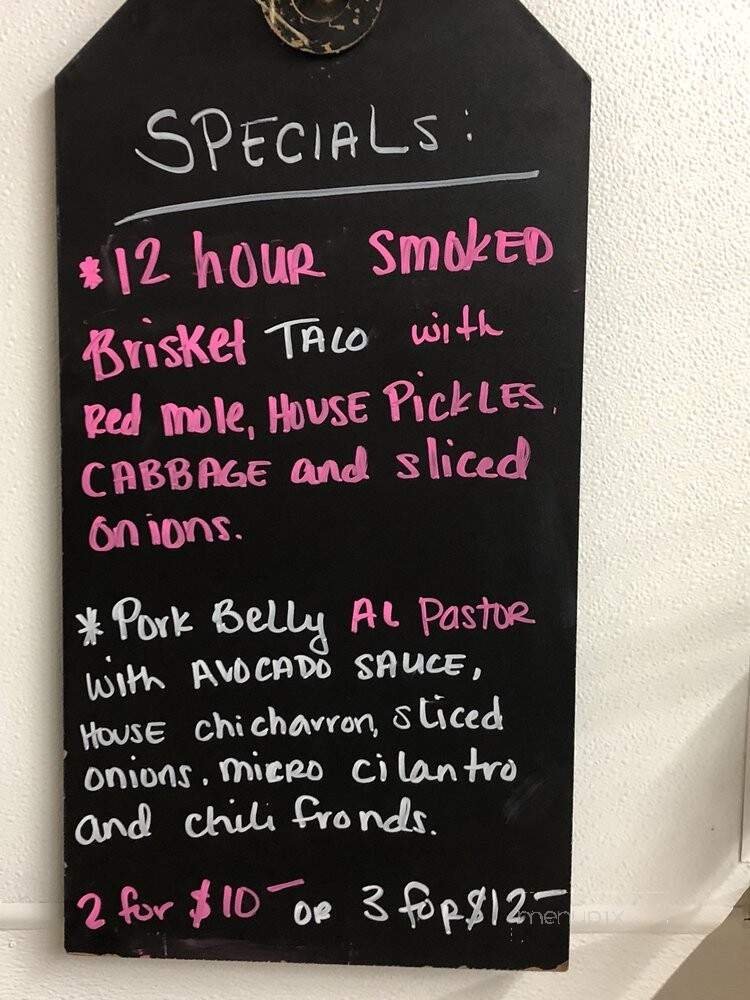 SPECIALS:
*12 hOUR SMOKED
Brisket TACO with
Red mole, HOUSE PickLES,
CABBAGE and sliced
onions.
*Pork Belly AL Pastor
with AVOCADO SAUCE,
HOUSE chicharron, sliced
onions, micRO cilantro
and chili fronds.
2 for $10- OR 3 foR $12-
menupix